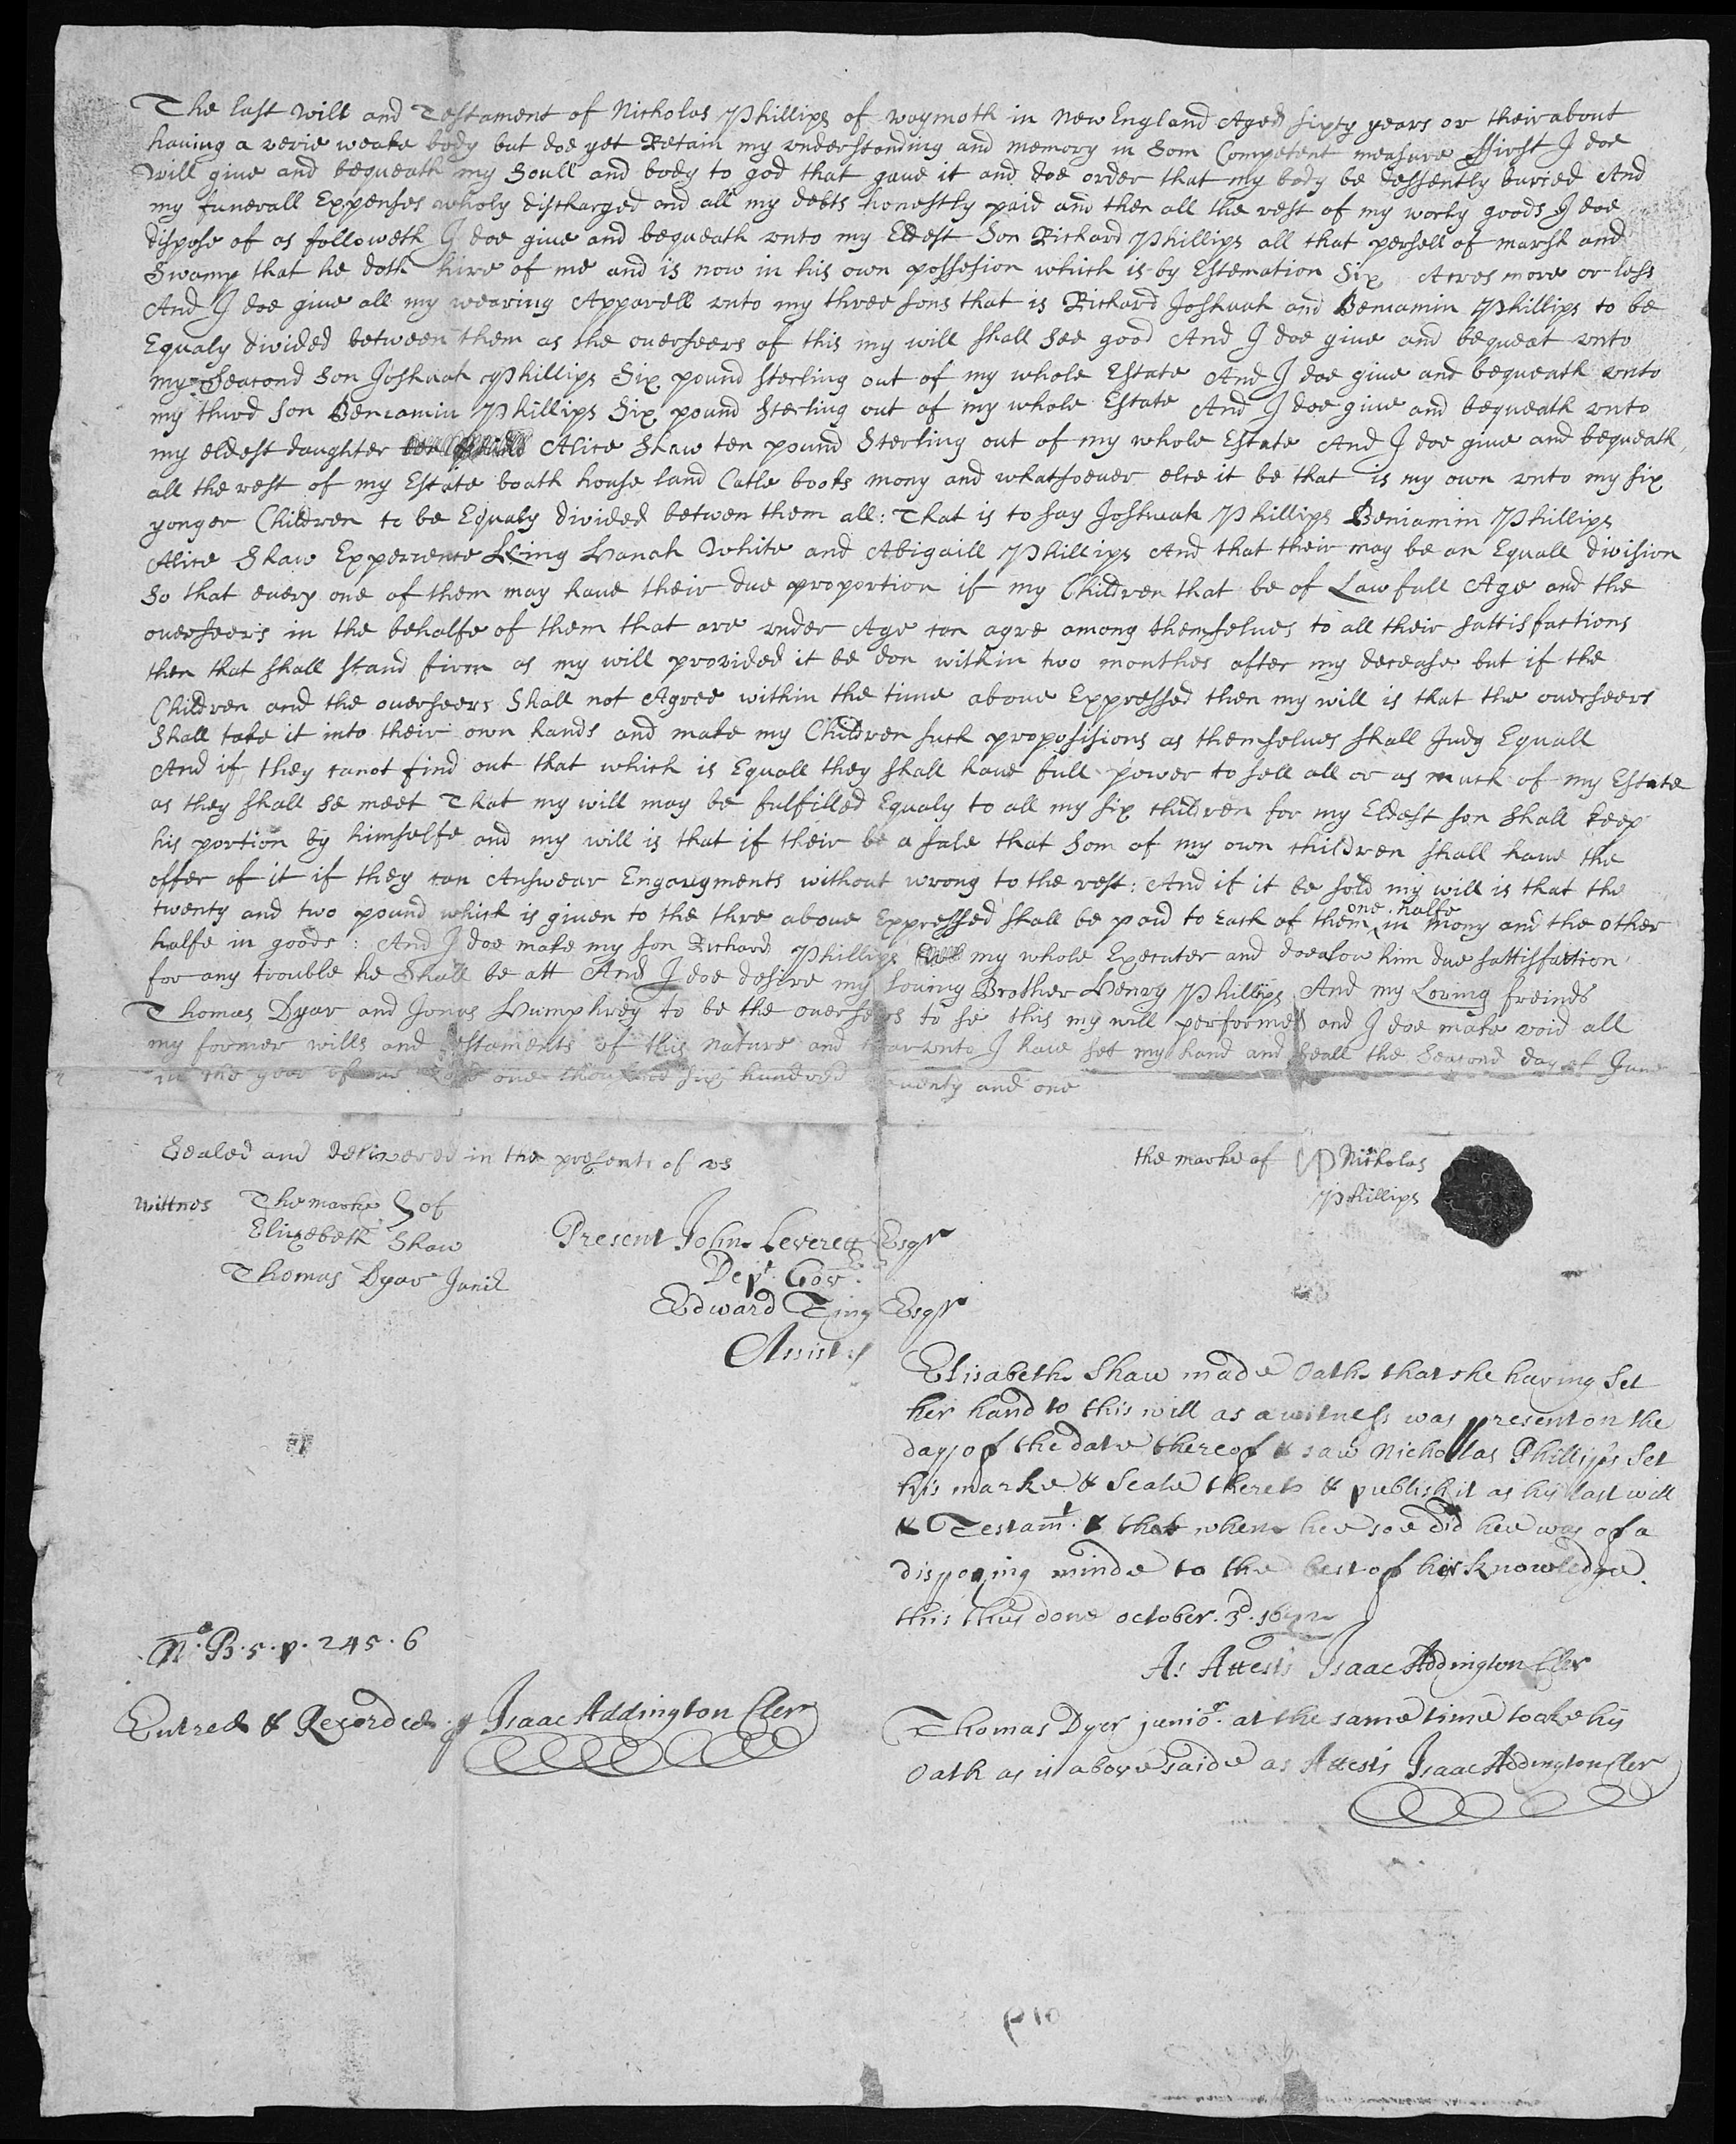 The last will and Testament of Nicholas Phillips of waymoth in New England Aged sixty years or their about
hauing a verie weake body but doe yet Retain my vnderstanding and memory in som Competent measure ffirst I doe
Will giue and bequeath my Soull and body to god that gaue it and doe order that my body be dessently buried And
my funerall Expenses wholy discharged and all my debts honestly paid and then all the rest of my worly goods I doe
dispose of as followeth I doe giue and bequeath vnto my Eldest Son Richard Phillips all that persell of marsh and
Swamp that he doth hire of me and is now in his own possesion which is by Estemation Six Acres more or less
And I doe giue all my wearing Apparell vnto my three sons that is Richard Joshuah and Beniamin Phillips to be
Equaly divided between them as the ouerseers of this my will shall See good And I doe giue and bequeat vnto
my Seacond Son Joshuah Phillips Six pound sterling out of my whole Estate And I doe giue and bequeath vnto
my third son Beniamin Phillips Six pound Sterling out of my whole Estate And I doe giue and bequeath vnto
my eldest daughter Alice Shaw ten pound Sterling out of my whole Estate And I doe giue and bequeath
all the rest of my Estate boath house land Catle books mony and whatsoeuer else it be that is my own vnto my six
yonger Children to be Equaly divided betwen them all: That is to say Joshuah Phillips Beniamin Phillips
Alice Shaw Experience King Hanah White and Abigaill Phillips And that their may be an Equall division
So that euery one of them may haue their due proportion if my Children that be of Lawfull Age and the
ouerseers in the behalfe of them that are vnder Age can agre among themselues to all their sattisfactions
then that shall stand firm as my will provided it be don within two monthes after my decease but if the
Children and the ouerseers Shall not Agree within the time aboue Expressed then my will is that the ouerseers
Shall take it into their own hands and make my Children such proposisions as themselues shall Judg Equall
And if they canot find out that which is Equall they shall haue full power to sell all or as much of my Estate
as they shall se meet That my will may be fulfilled Equaly to all my six children for my Eldest son Shall keep
his portion by himselfe and my will is that if their be a sale that Som of my own children shall haue the
offer of it if they can Answear Engaugments without wrong to the rest: And if it be sold my will is that the
twenty and two pound which is given to the thre aboue Expressed shall be paid to Each of them one halfe in mony and the other
halfe in goods: And I doe make my son Richard Phillips my whole Executer and doe alow him due sattisfaction
for any trouble he Shall be att And I doe desire my louing Brother Henry Phillips And my Loving freinds
Thomas Dyar and Jonas Humphrey to be the ouerseers to se this my will performed and I doe make void all
my former wills and testaments of this nature and hearvnto I haue set my hand and seall the Seacond day of June
in the year of our lord one thousand six hundred seuenty and one
Sealed and delivered in the presents of vs
the marke of P Nicholas
Phillips
wittnes The marke of
Elizebeth Shaw
Thomas Dyar Junir
Present John Leverett Esqr
Dept. Gov.
Edward Ting Esqr
Assist.
Elisabeth Shaw made Oath that she having Set
her hand to this will as a witness was present on the
day of the date thereof & saw Nichollas Phillips Set
his marke & Seale thereto & publish it as his last will
& Testamt. & that when hee soe did hee was of a
disposing minde to the best of her knowledge.
this thus done october. 3d. 1672
As Attests Isaac Addington Cler
Thomas Dyer junior. at the same time tooke his
Oath as is abovesaide as Attests Isaac Addington Cler
B. 5. p. 245. 6
Entred & Recorded p Isaac Addington Cler